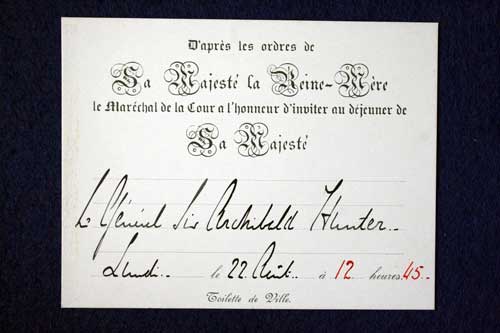 D'après les ordres de
Sa Majesté la Reine-Mère
le Maréchal de la Cour a l'honneur d'inviter au déjeuner de
Sa Majesté
Le Général Sir Archibald Hunter
Lundi le 22 Août à 12 heures 45
Toilette de Ville.